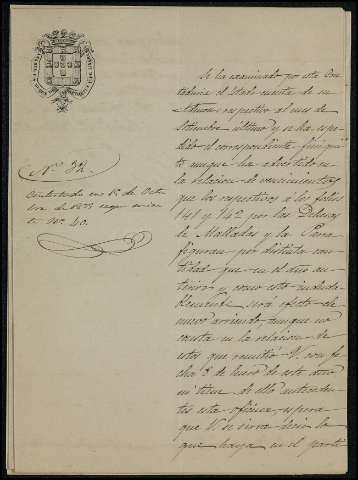 Nº 32.
Contestada en 15 de Octu
bre de 187
el Nº 40.
Se ha examinado por esta Con
taduria el Estado cuenta de su
respectivo al mes de
Setiembre último y se ha espe
dido el correspondiente finiquito
aunque ha advertido en
la relacion de vencimientos
que los respectivos a los folios
141 y 142 por las Dehesas
de Malladas y la Parra
figuran por distinta can
tidad que en el año an
terior y como esto induda
blemente será efecto de
nuevo arriendo, aunque no
consta en la relacion de
estos que remitió V. con fe
cha 3 de Enero de este año
ni tiene de ello anteceden
tes esta oficina, espera
que V. se sirva decir lo
que haya en el parti